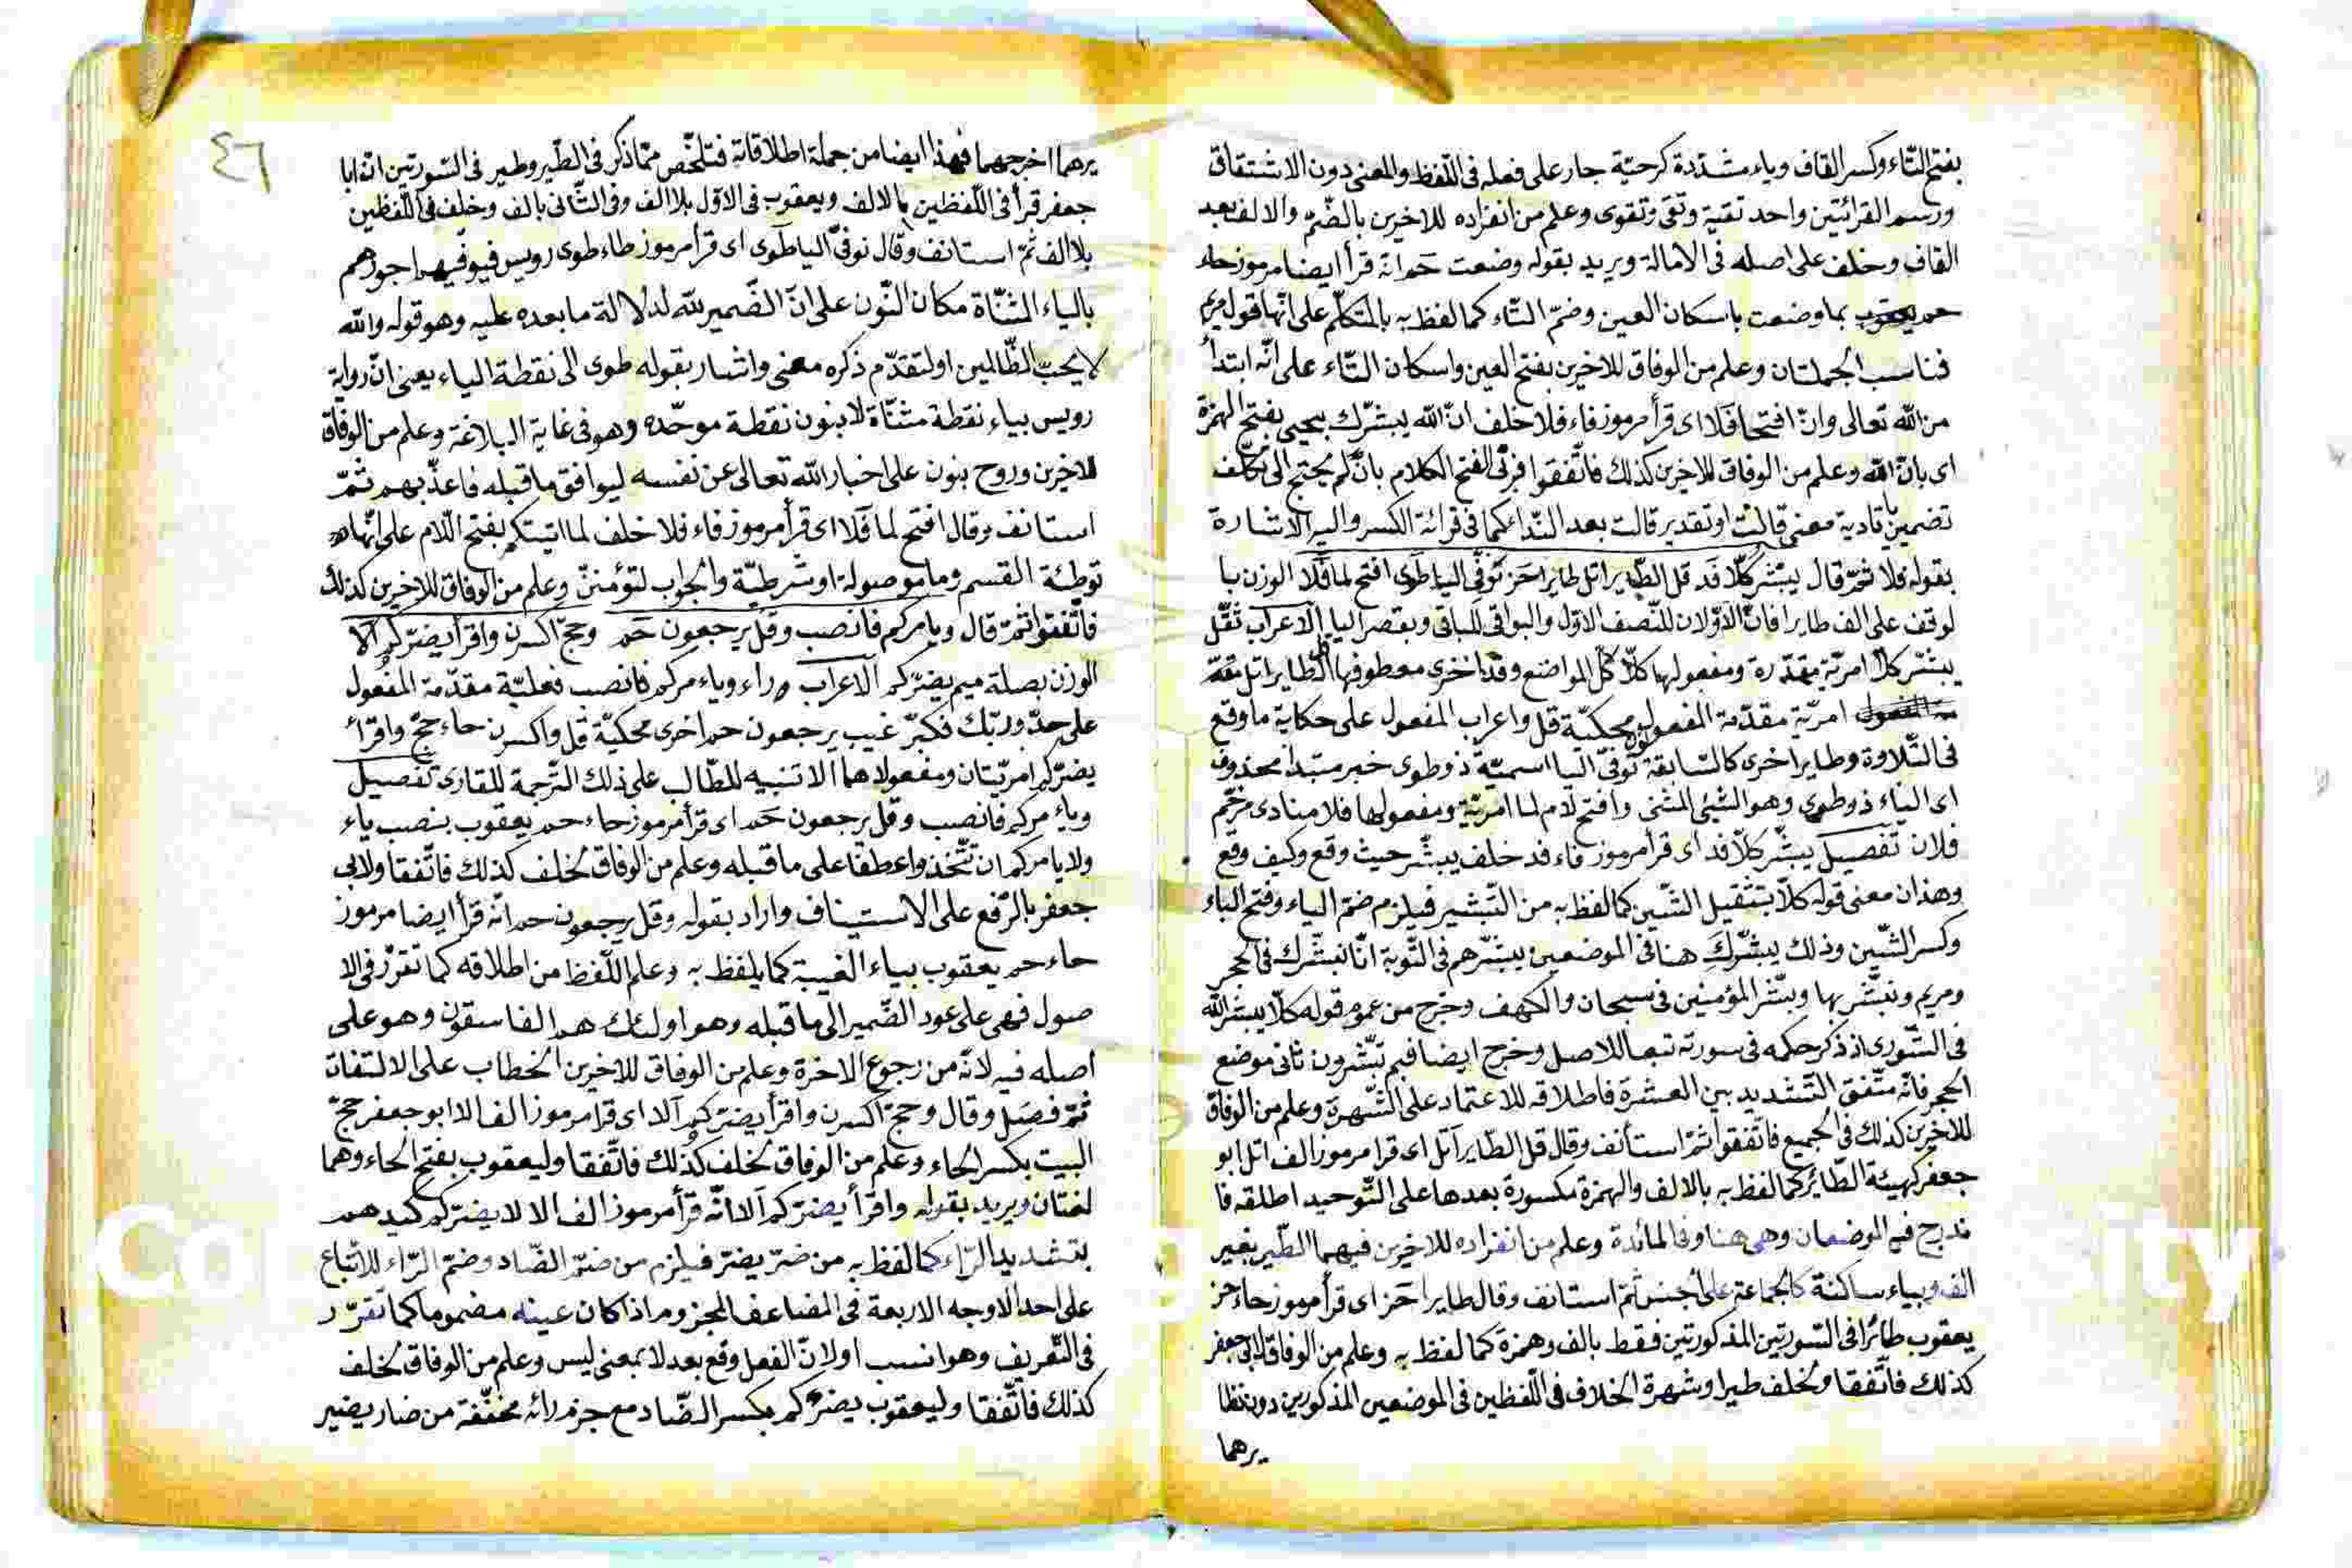 بفتح التّاء وكسر القاف وياء مشدّدة كرحيّة جار على فعله فى اللّفظ والمعنى دون الاشتقاق
ورسم القرائتين واحد تقية وتقى وتقوى وعلم من انفراده للاخرين بالضّمّ والالف بعد
القاف وخلف على اصله فى الامالة ويريد بقوله وضعت حم انّه قرأ ايضا مرموز حاء
حم يعقوب بما وضعت باسكان العين وضمّ التّاء كما لفظ به بالمتكلّم على انّها قول مريم
فناسب الجملتان وعلم من الوفاق للاخرين بفتح العين واسكان التّاء على انّه ابتدأ
من الله تعالى وانّ افتحا فلا اى قرأ مرموز فاء فلا خلف انّ الله يبشّرك بيحيى بفتح الهمزة
اى بانّ الله وعلم من الوفاق للاخرين كذلك فاتّفقوا فرقى الفتح الكلام بانّ لم يحتج الى تكلّف
تضمين نادته معنى قالت او تقدير قالت بعد النّدا كما فى قرائة الكسر واليه الاشارة
بقوله فلا ثمّ قال يبشّر كلّا فد قل الطّاير اتل طايرا حز نوفّى اليا طوى افتح لما فلا الوزن با
لوقف على الف طايرا فانّ الاوّلان للنّصف الاوّل والبواقى للباقى وبقصر اليا الاعراب ثقّل
يبشّر كلّا امريّة مقدّرة ومفعولها كلّا كلّ المواضع وفد اخرى معطوفها الطّاير اتل
امريّة مقدّمة المفعول محكيّة قل واعراب المفعول على حكاية ما وقع
فى التّلاوة وطايرا اخرى كالسّابقة نوفّى اليا اسميّة ذو طوى خبر مبتدأ محذوف
اى الياء ذو طوى وهو الشّئ المثنى وافتح لام لما امريّة ومفعولها فلا منادى مرخّم
فلان تفصيل يبشّر كلّا فد اى قرأ مرموز فاء فد خلف يبشّر حيث وقع وكيف وقع
وهذان معنى قوله كلّا بتثقيل الشّين كما لفظ به من التّبشير فيلزم ضمّ الياء وفتح الباء
وكسر الشّين وذلك يبشّرك هنا فى الموضعين يبشّرهم فى التّوبة انّا نبشّرك فى الحجر
ومريم ونبشّر بها ويبشّر المؤمنين فى سبحان والكهف وخرج من عموم قوله كلّا يبشّر الله
فى الشّورى اذ ذكر حكمه فى سورته تبعا للاصل وخرج ايضا فبم تبشّرون ثانى موضع
الحجر فانّه متّفق التّشديد بين العشرة فاطلاقه للاعتماد على الشّهرة وعلم من الوفاق
للاخرين كذلك فى الجميع فاتّفقوا ثمّ استأنف وقال قل الطّاير اتل اى قرا مرموز الف اتل ابو
جعفر كهيئة الطّائر كما لفظ به بالالف والهمزة مكسورة بعدها على التّوحيد اطلقه فا
ندرج فيه الموضعان وهى هنا وفى المائدة وعلم من انفراده للاخرين فيهما الطّير بغير
الف وبياء ساكنة كالجماعة على الجنس ثمّ استانف وقال طايرا حز اى قرأ مرموز حاء حز
يعقوب طائرا فى السّورتين المذكورتين فقط بالف وهمزة كما لفظ به وعلم من الوفاق لابى جعفر
كذلك فاتّفقا ولخلف طيرا وشهرة الخلاف فى اللّفظين فى الموضعين المذكورين دون نظا
يرهما
٤٦
يرهما اخرجهما فهذا ايضا من جملة اطلاقاته فتلخّص ممّا ذكر فى الطّير وطير فى السّورتين انّ ابا
جعفر قرأ فى اللّفظين بالالف ويعقوب فى الاوّل بلا الف وفى الثّانى بالف وخلف فى اللّفظين
بلا الف ثمّ استانف وقال نوفّى اليا طوى اى قرأ مرموز طاء طوى رويس فيوفّيهم اجورهم
بالياء المثنّاة مكان النّون على انّ الضّمير لله لدلالة ما بعده عليه وهو قوله والله
لا يحبّ الظّالمين او لتقدّم ذكره معنى واشار بقوله طوى الى نقطة الياء يعنى انّ رواية
رويس بياء نقطة مثنّاة لا بنون نقطة موحّدة وهو فى غاية البلاغة وعلم من الوفاق
للاخرين وروح بنون على اخبار الله تعالى عن نفسه ليوافق ما قبله فاعذّبهم ثمّ
استانف وقال افتح لما فلا اى قرأ مرموز فاء فلا خلف لما اتيتكم بفتح اللّام على انّها
توطئة القسم وما موصولة او شرطيّة والجواب لتؤمننّ وعلم من الوفاق للاخرين كذلك
فاتّفقوا ثمّ قال ويامركم فانصب وقل يرجعون حم وحجّ اكسرن واقرأ يضرّكم الا
الوزن بصلة ميم يضرّكم الاعراب وراء وياء مركم فانصب فعليّة مقدّمة المفعول
على حدّ وربّك فكبّر غيب يرجعون حم اخرى محكيّة قل واكسرن حاء حجّ واقرأ
يضرّكم امريّتان ومفعولاهما الا تنبيه للطّالب على ذلك التّرجمة للقارى تفصيل
وياء مركم فانصب وقل يرجعون حم اى قرأ مرموز حاء حم يعقوب بنصب ياء
ولا يامركم ان تتّخذوا عطفا على ما قبله وعلم من الوفاق لخلف كذلك فاتّفقا ولابى
جعفر بالرّفع على الاستيناف واراد بقوله وقل يرجعون حم انّه قرأ ايضا مرموز
حاء حم يعقوب بياء الغيبة كما يلفظ به وعلم اللّفظ من اطلاقه كما تقرّر فى الا
صول فهى على عود الضّمير الى ما قبله وهو اولئك هم الفاسقون وهو على
اصله فيه لانّه من رجوع الاخرة وعلم من الوفاق للاخرين الخطاب على الالتفات
ثمّ فصّل وقال وحجّ اكسرن واقرأ يضرّكم الا اى قرا مرموز الف الا ابو جعفر حجّ
البيت بكسر الحاء وعلم من الوفاق لخلف كذلك فاتّفقا وليعقوب بفتح الحاء وهما
لغتان ويريد بقوله واقرأ يضرّكم الا انّه قرأ مرموز الف الا لا يضرّكم كيدهم
بتشديد الرّاء كما لفظ به من ضرّ يضرّ فيلزم من ضمّ الضّاد وضمّ الرّاء للاتّباع
على احد الاوجه الاربعة فى المضاعف المجزوم اذا كان عينه مضموما كما تقرّر
فى التّعريف وهو انسب او لانّ الفعل وقع بعد لا بمعنى ليس وعلم من الوفاق لخلف
كذلك فاتّفقا وليعقوب يضركم بكسر الضّاد مع جزم رائه مخفّفة من ضار يضير